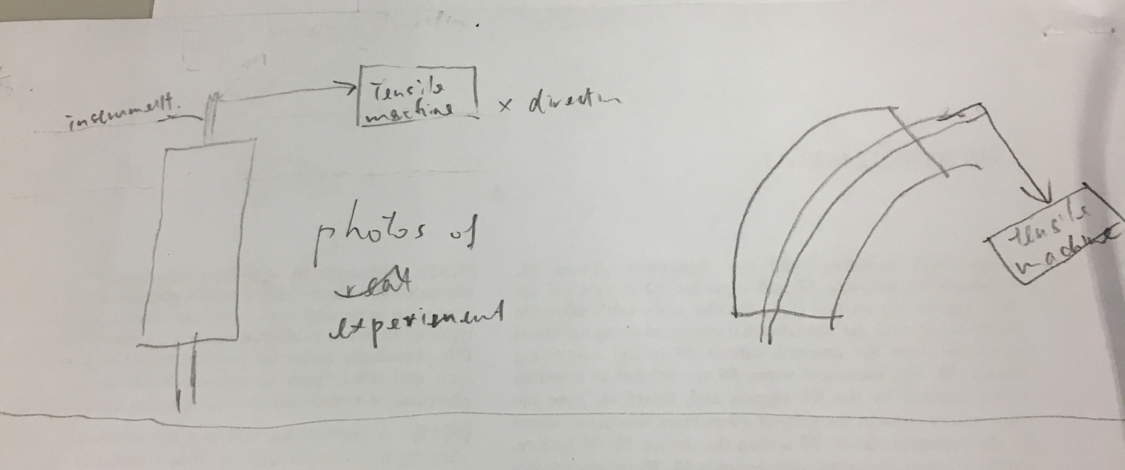 instrument.
Tensile
machine
x direction
photos of
real
experiment
Tensile
machine